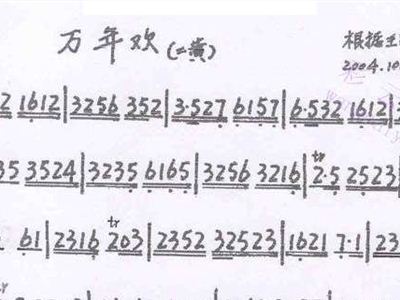 万年欢(二黄)
根据王
2004.10
2 1612|3256 352|3·527 6157|6·532 1612|3
35 3524|3235 6165|3256 3216|tr 2·5 2523|
61|2316 tr 203|2352 32523|1621 7·1|23